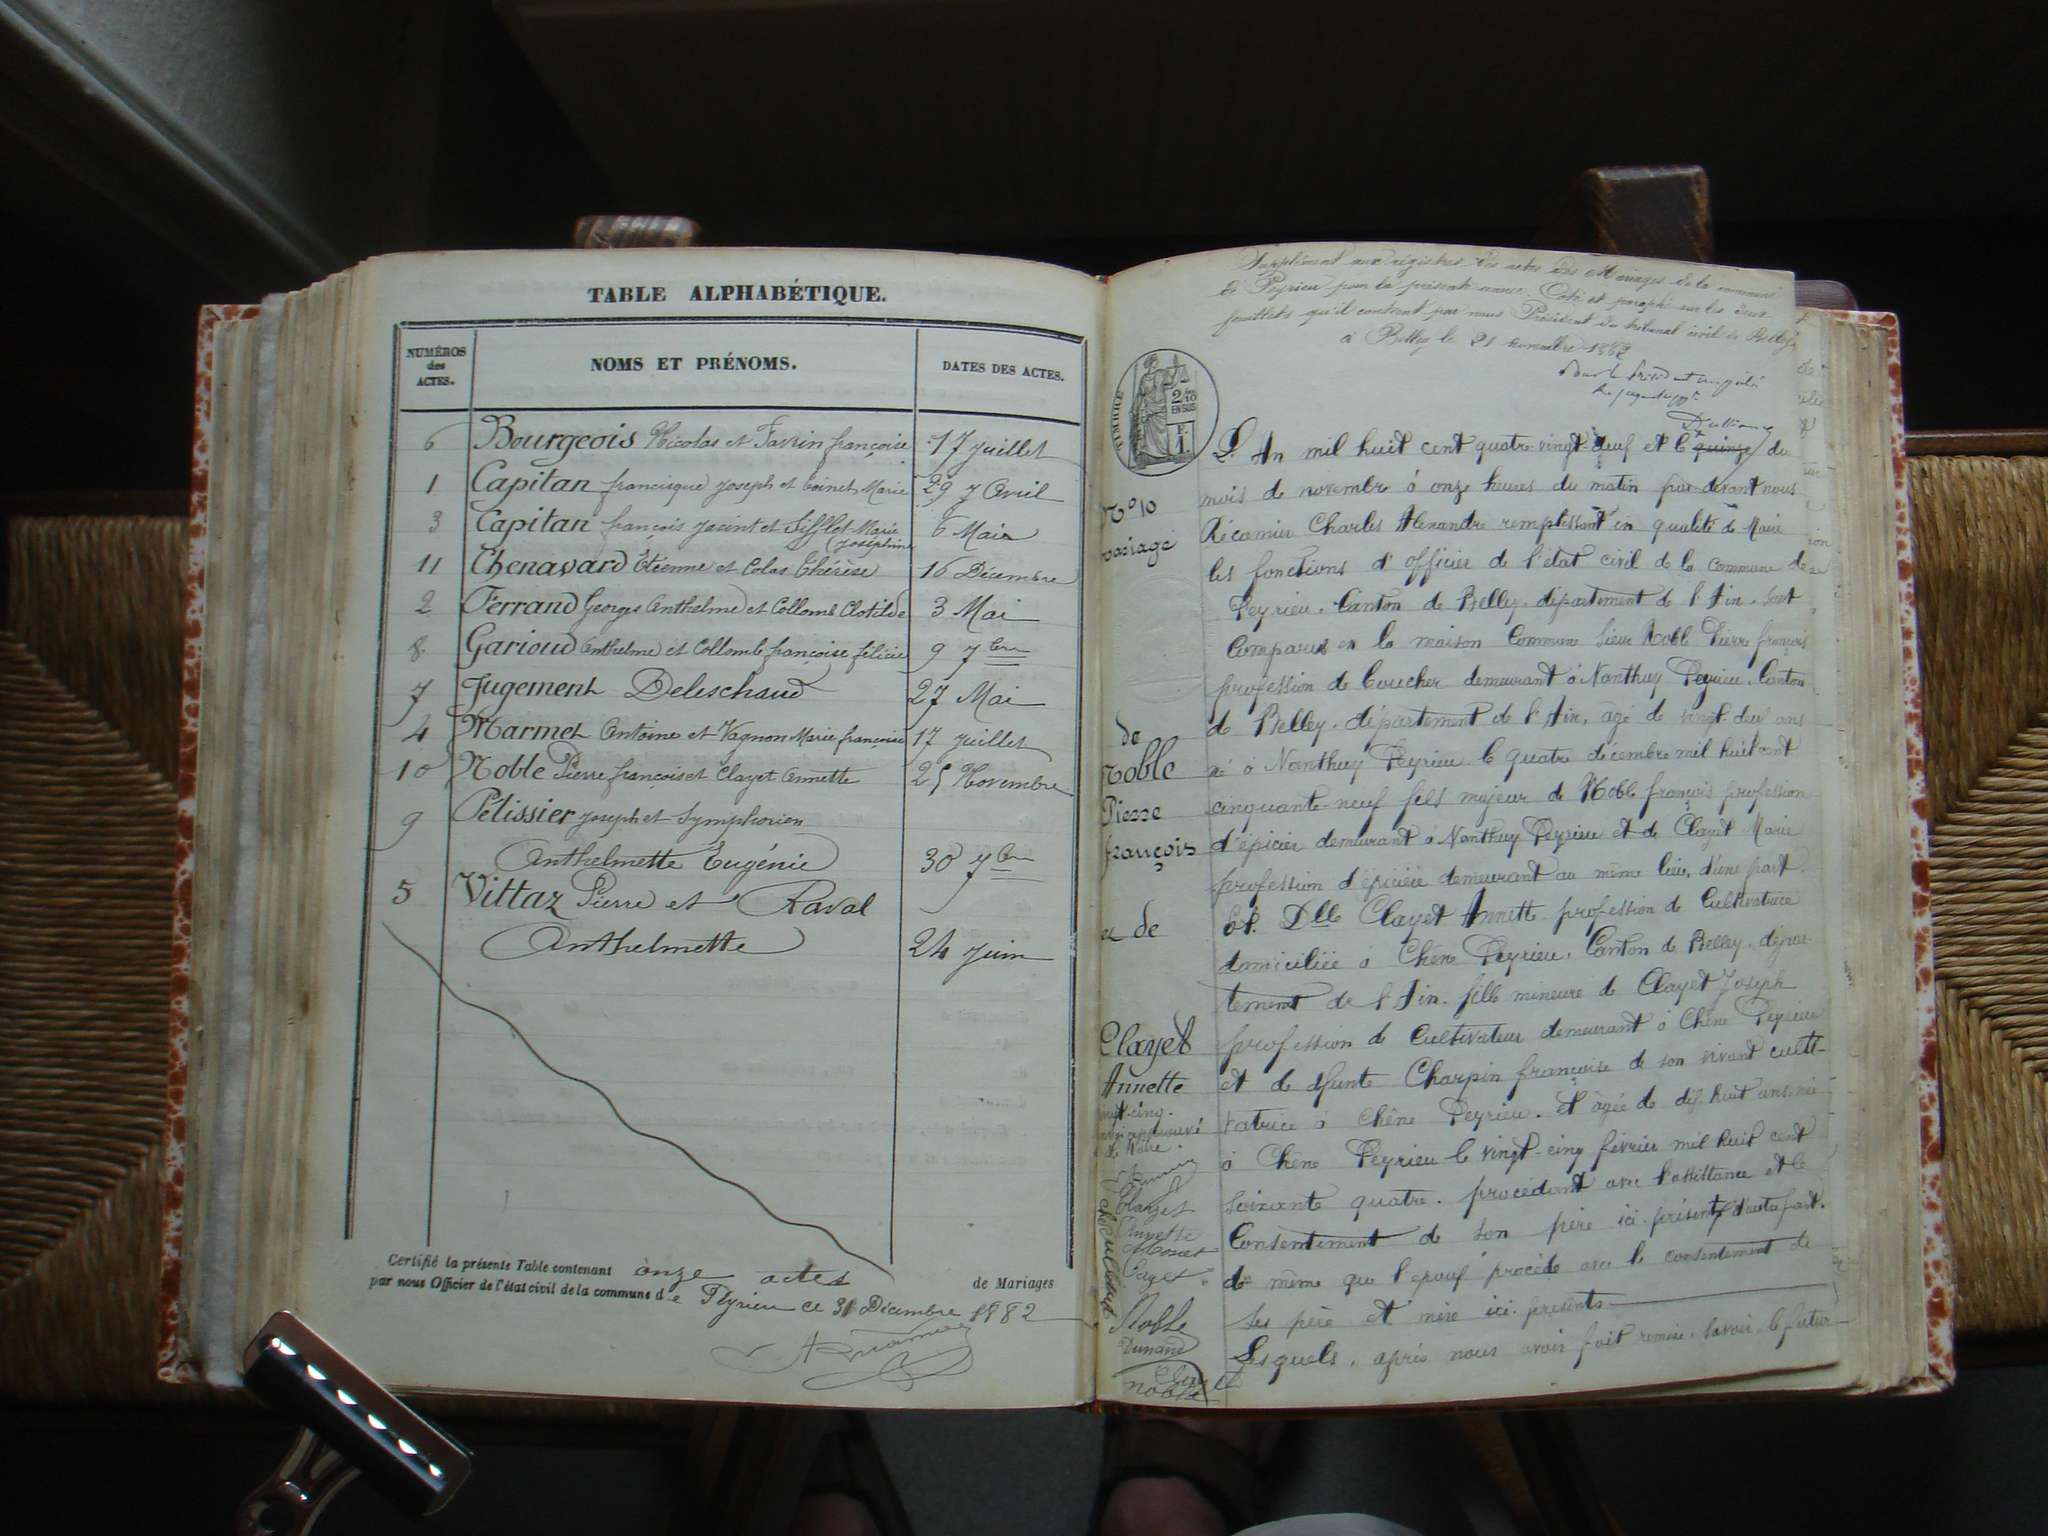 TABLE ALPHABÉTIQUE.
NUMÉROS des ACTES.
NOMS ET PRÉNOMS.
DATES DES ACTES.
6 Bourgeois Nicolas et Favrin françoise 17 juillet
1 Capitan francisque joseph et Coinet Marie 29 Avril
3 Capitan françois jacint et Sifflet Marie joséphine 6 Mai
11 Chenavard Étienne et Colas Thérèse 16 Décembre
2 Ferrand Georges Anthelme et Collomb Clotilde 3 Mai
8 Garioud Anthelme et Collomb françoise félicie 9 7bre
7 Jugement Deleschaud 27 Mai
4 Marmet Antoine et Vagnon Marie françoise 17 juillet
10 Noble Pierre françois et Clayet Annette 25 Novembre
9 Pélissier joseph et Symphorien
Anthelmette Eugénie 30 7bre
5 Vittaz Pierre et Raval
Anthelmette 24 juin
Certifié la présente Table contenant onze actes de Mariages
par nous Officier de l'état civil de la commune de Peyrieu ce 31 Décembre 1882
Supplément aux régistres des actes des Mariages de la commune
de Peyrieu pour la présente année. Coté et paraphé sur les deux
feuillets qu'il contient par nous Président du tribunal civil de Belley
à Belley le 21 novembre 1882
TIMBRE
2/10
EN SUS
F.
1.
L'An mil huit cent quatre-vingt-deuf et le quinze du
mois de novembre à onze heures du matin par-devant nous
Récamier Charles Alexandre remplissant en qualité de Maire
les fonctions d'officier de l'état civil de la commune de
Peyrieu. Canton de Belley. département de l'Ain. sont
Comparus en la maison Commune sieur Noble Pierre françois
profession de Coucher demeurant à Nanthuy Peyrieu. Canton
de Belley. département de l'Ain, âgé de vingt-deuf ans
né à Nanthuy Peyrieu le quatre décembre mil huit cent
cinquante-neuf fils majeur de Noble françois profession
d'épicier demeurant à Nanthuy Peyrieu et de Clayet Marie
profession d'épicière demeurant au même lieu, d'une part.
Et. Dlle Clayet Annette profession de Cultivatrice
domiciliée à Chêne Peyrieu. Canton de Belley. dépar-
tement de l'Ain. fille mineure de Clayet Joseph
profession de Cultivateur demeurant à Chêne Peyrieu
et de défunte Charpin françoise de son vivant culti-
vatrice à Chêne Peyrieu. et âgée de dix huit ans née
à Chêne Peyrieu le vingt-cinq février mil huit cent
soixante quatre. procédant avec l'assistance et le
Consentement de son père ici présent, d'autre part.
de même que l'épouf procède avec le consentement de
ses père et mère ici présents
Lesquels, après nous avoir fait remise, savoir le futur
N° 10
mariage
de
Noble
Pierre
françois
et de
Clayet
Annette
Clayet
Annette
Noble
Dunand
noble